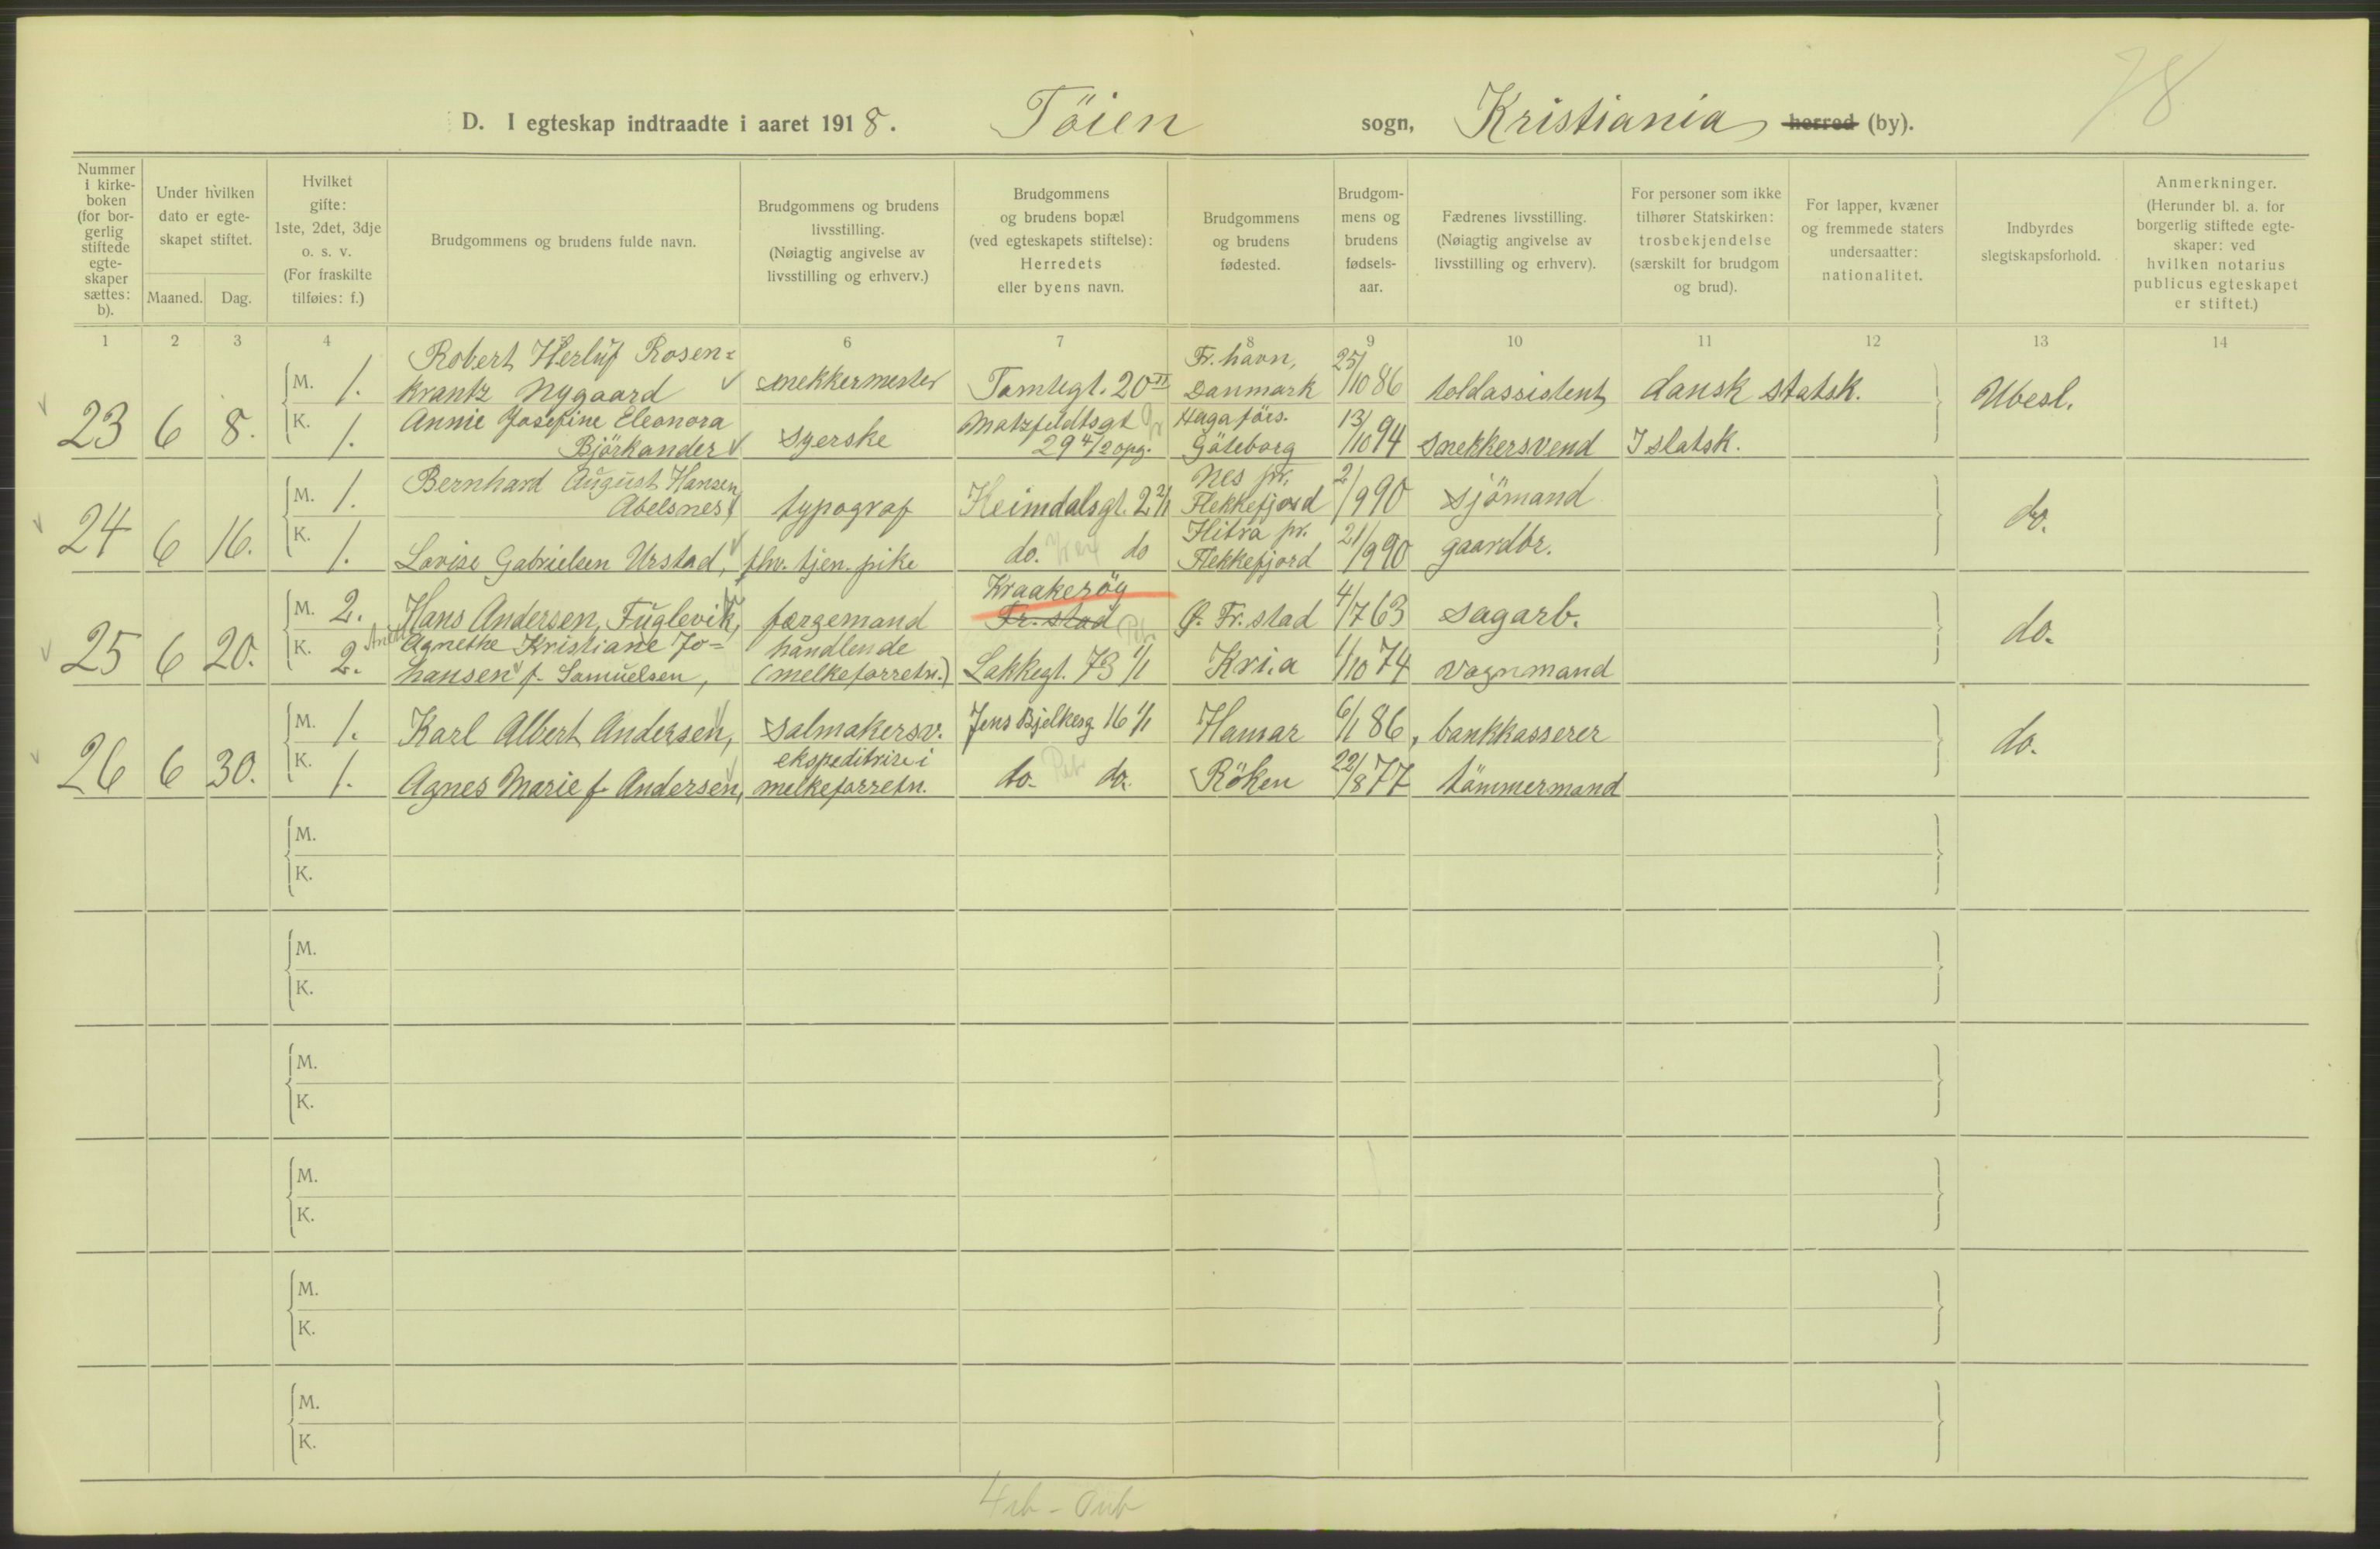 78
D. I egteskap indtraadte i aaret 1918. Töien sogn, Kristiania herred (by).
Nummer i kirke- boken (for bor- gerlig stiftede egte- skaper sættes: b).
Under hvilken dato er egte- skapet stiftet.
Maaned. Dag.
Hvilket gifte: 1ste, 2det, 3dje o. s. v. (For fraskilte tilføies: f.)
Brudgommens og brudens fulde navn.
Brudgommens og brudens livsstilling. (Nøiagtig angivelse av livsstilling og erhverv.)
Brudgommens og brudens bopæl (ved egteskapets stiftelse): Herredets eller byens navn.
Brudgommens og brudens fødested.
Brudgom- mens og brudens fødsels- aar.
Fædrenes livsstilling. (Nøiagtig angivelse av livsstilling og erhverv).
For personer som ikke tilhører Statskirken: trosbekjendelse (særskilt for brudgom og brud).
For lapper, kvæner og fremmede staters undersaatter: nationalitet.
Indbyrdes slegtskapsforhold.
Anmerkninger. (Herunder bl. a. for borgerlig stiftede egte- skaper: ved hvilken notarius publicus egteskapet er stiftet.)
1 2 3 4 6 7 8 9 10 11 12 13 14
23 6 8.
M. 1. Robert Herluf Rosen= krantz Nygaard snekkermester Tomtegt. 20 II Fr. havn, Danmark 25/10 86 toldassistent dansk statsk. Ubesl.
K. 1. Annie Josefine Eleonora Björkander syerske Matzfeldtsgt 29 4/2 opg. Haga förs. Göteborg 13/10 94 snekkersvend I statsk.
24 6 16.
M. 1. Bernhard August Hansen Abelsnes, typograf Heimdalsgt. 2 2/1 Nes pr. Flekkefjord 2/9 90 sjömand do.
K. 1. Lovise Gabrielsen Urstad, fhv. tjen. pike do. do Hitra pr. Flekkefjord 21/9 90 gaardbr.
25 6 20.
M. 2. Hans Andersen, Fuglevik, færgemand Kraakeröy Fr. stad Ø. Fr. stad 4/7 63 sagarb. do.
K. 2. Agnethe Kristiane Jo= hansen f. Samuelsen, handlende (melkeforretn.) Lakkegt. 73 1/1 Kri.a 1/10 74 vognmand
26 6 30.
M. 1. Karl Albert Andersen, salmakersv. Jens Bjelkesg. 16 1/1 Hamar 6/1 86, bankkasserer do.
K. 1. Agnes Marie f. Andersen, ekspeditrise i melkeforretn. do. do. Röken 22/8 77 tömmermand
M.
K.
M.
K.
M.
K.
M.
K.
M.
K.
M.
K.